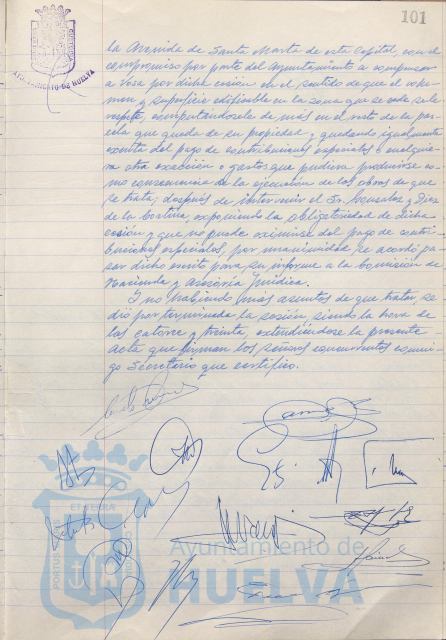 101
AYUNTAMIENTO DE HUELVA
la Avenida de Santa Marta de esta Capital, con el
compromiso por parte del Ayuntamiento a compensar
a Vose por dicha cesión en el sentido de que el volu-
men y superficie edificable en la zona que se cede se le
respete, computándosele de más en el resto de la par-
cela que queda de su propiedad y quedando igualmente
exenta del pago de contribuciones especiales o cualquie-
ra otra exacción o gastos que pudiera producirse co-
mo consecuencia de la ejecución de las obras de que
se trata, después de intervenir el Sr. González y Díez
de la Cortina, exponiendo la obligatoriedad de dicha
cesión y que no puede eximirse del pago de contri-
buciones especiales, por unanimidad se acordó pa-
sar dicho escrito para su informe a la Comisión de
Hacienda y Asesoría Jurídica.
Y no habiendo mas asuntos de que tratar, se
dió por terminada la sesión siendo la hora de
las catorce y treinta, extendiéndose la presente
acta que firman los señores concurrentes conmi-
go Secretario que certifico.
PORTUS MARIS
ET TERRÆ
Ayuntamiento de
HUELVA